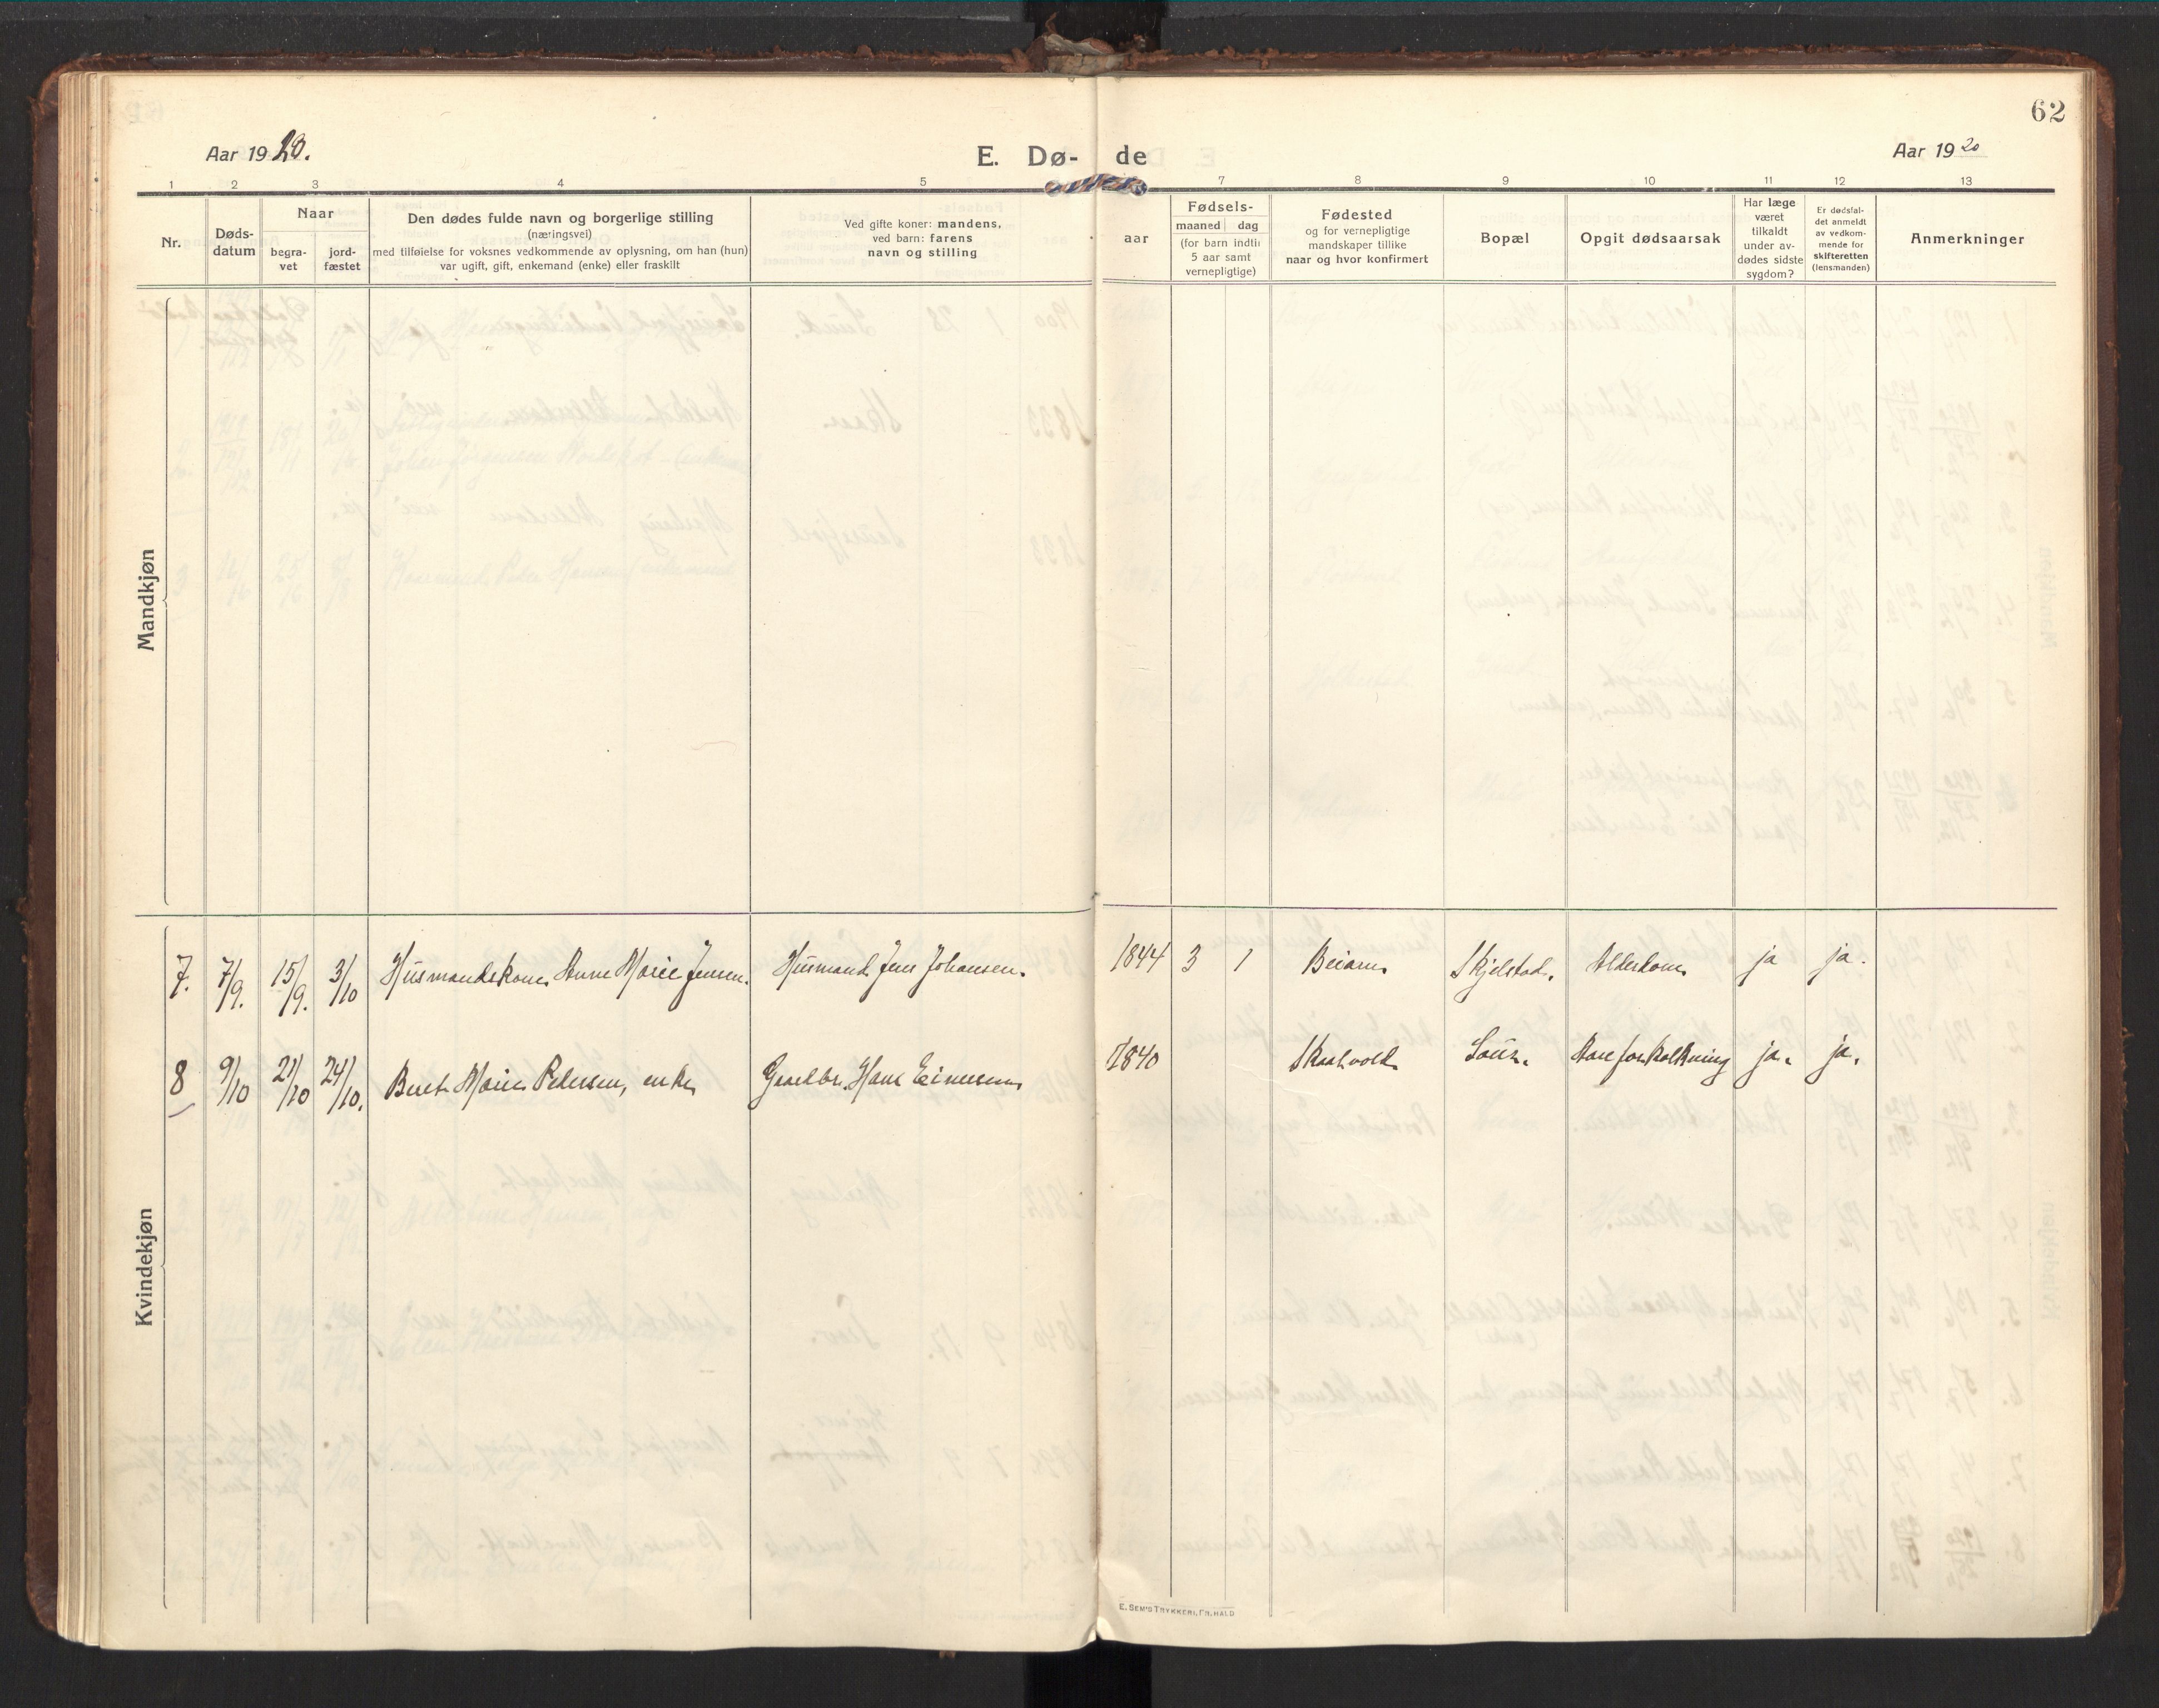 62
Aar 1920.
E. Dø- de
Aar 1920
1 2 3 4 5 7 8 9 10 11 12 13
Nr.
Døds-
datum
Naar
begra-
vet
jord-
fæstet
Den dødes fulde navn og borgerlige stilling
(næringsvei)
med tilføielse for voksnes vedkommende av oplysning, om han (hun)
var ugift, gift, enkemand (enke) eller fraskilt
Ved gifte koner: mandens,
ved barn: farens
navn og stilling
aar
Fødsels-
maaned dag
(for barn indtil
5 aar samt
vernepligtige)
Fødested
og for vernepligtige
mandskaper tillike
naar og hvor konfirmert
Bopæl
Opgit dødsaarsak
Har læge
været
tilkaldt
under av-
dødes sidste
sygdom?
Er dødsfal-
det anmeldt
av vedkom-
mende for
skifteretten
(lensmanden)
Anmerkninger
Mandkjøn
7. 7/9. 15/9. 3/10 Husmandskone Anne Marie Jensen. Husmand Jens Johansen. 1844 3 1 Beiarn Skjelstad. Alderdom ja ja.
8 9/10 21/10 24/10. Beret Marie Pedersen, enke Gaardbr. Hans 1840 Skaalvold Saur. Aareforkalkning ja. ja.
Kvindekjøn
E. SEM'S TRYKKERI, FR.HALD